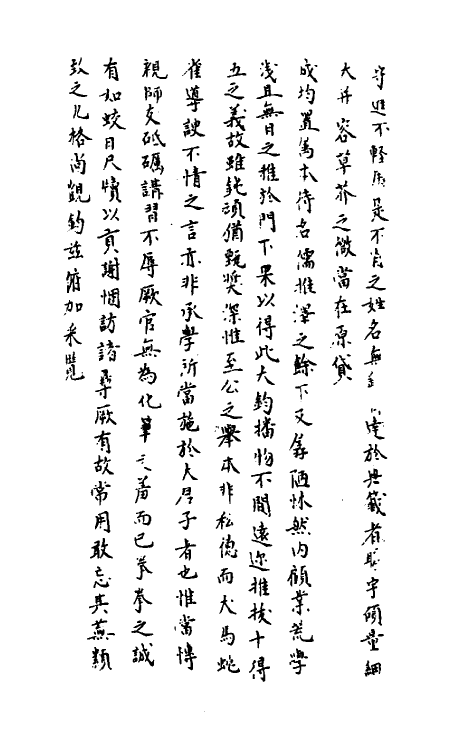 守進不輕用是不肖之姓名無達於異籤者賜宇碩量綱
大并容草芥之微當在原貸
成均置篤本待名儒推澤之餘下及孱陋怵然內顧業荒學
淺且無日之雅於門下果以得此大鈞播物不間遠邇推拔十得
五之義故雖鈍頑猶甄奬深惟至公之舉本非私德而犬馬蛇
雀導諛不情之言亦非承學所當施於大君子者也惟當博
親師友砥礪講習不辱厥官無為化筆之羞而已拳拳之誠
有如皎日尺牘以貢謝悃訪諸尋厥有故常用敢忘其蕪纇
效之凡格尚覬鈞玆俯加采覽